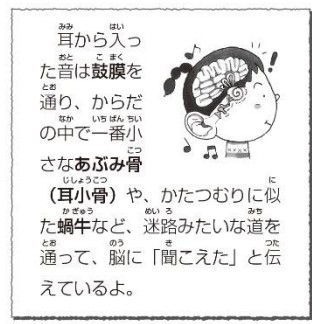 耳から入っ
た音は鼓膜を
通り、からだ
の中で一番小
さなあぶみ骨
（耳小骨）や、かたつむりに似
た蝸牛など、迷路みたいな道を
通って、脳に「聞こえた」と伝
えているよ。